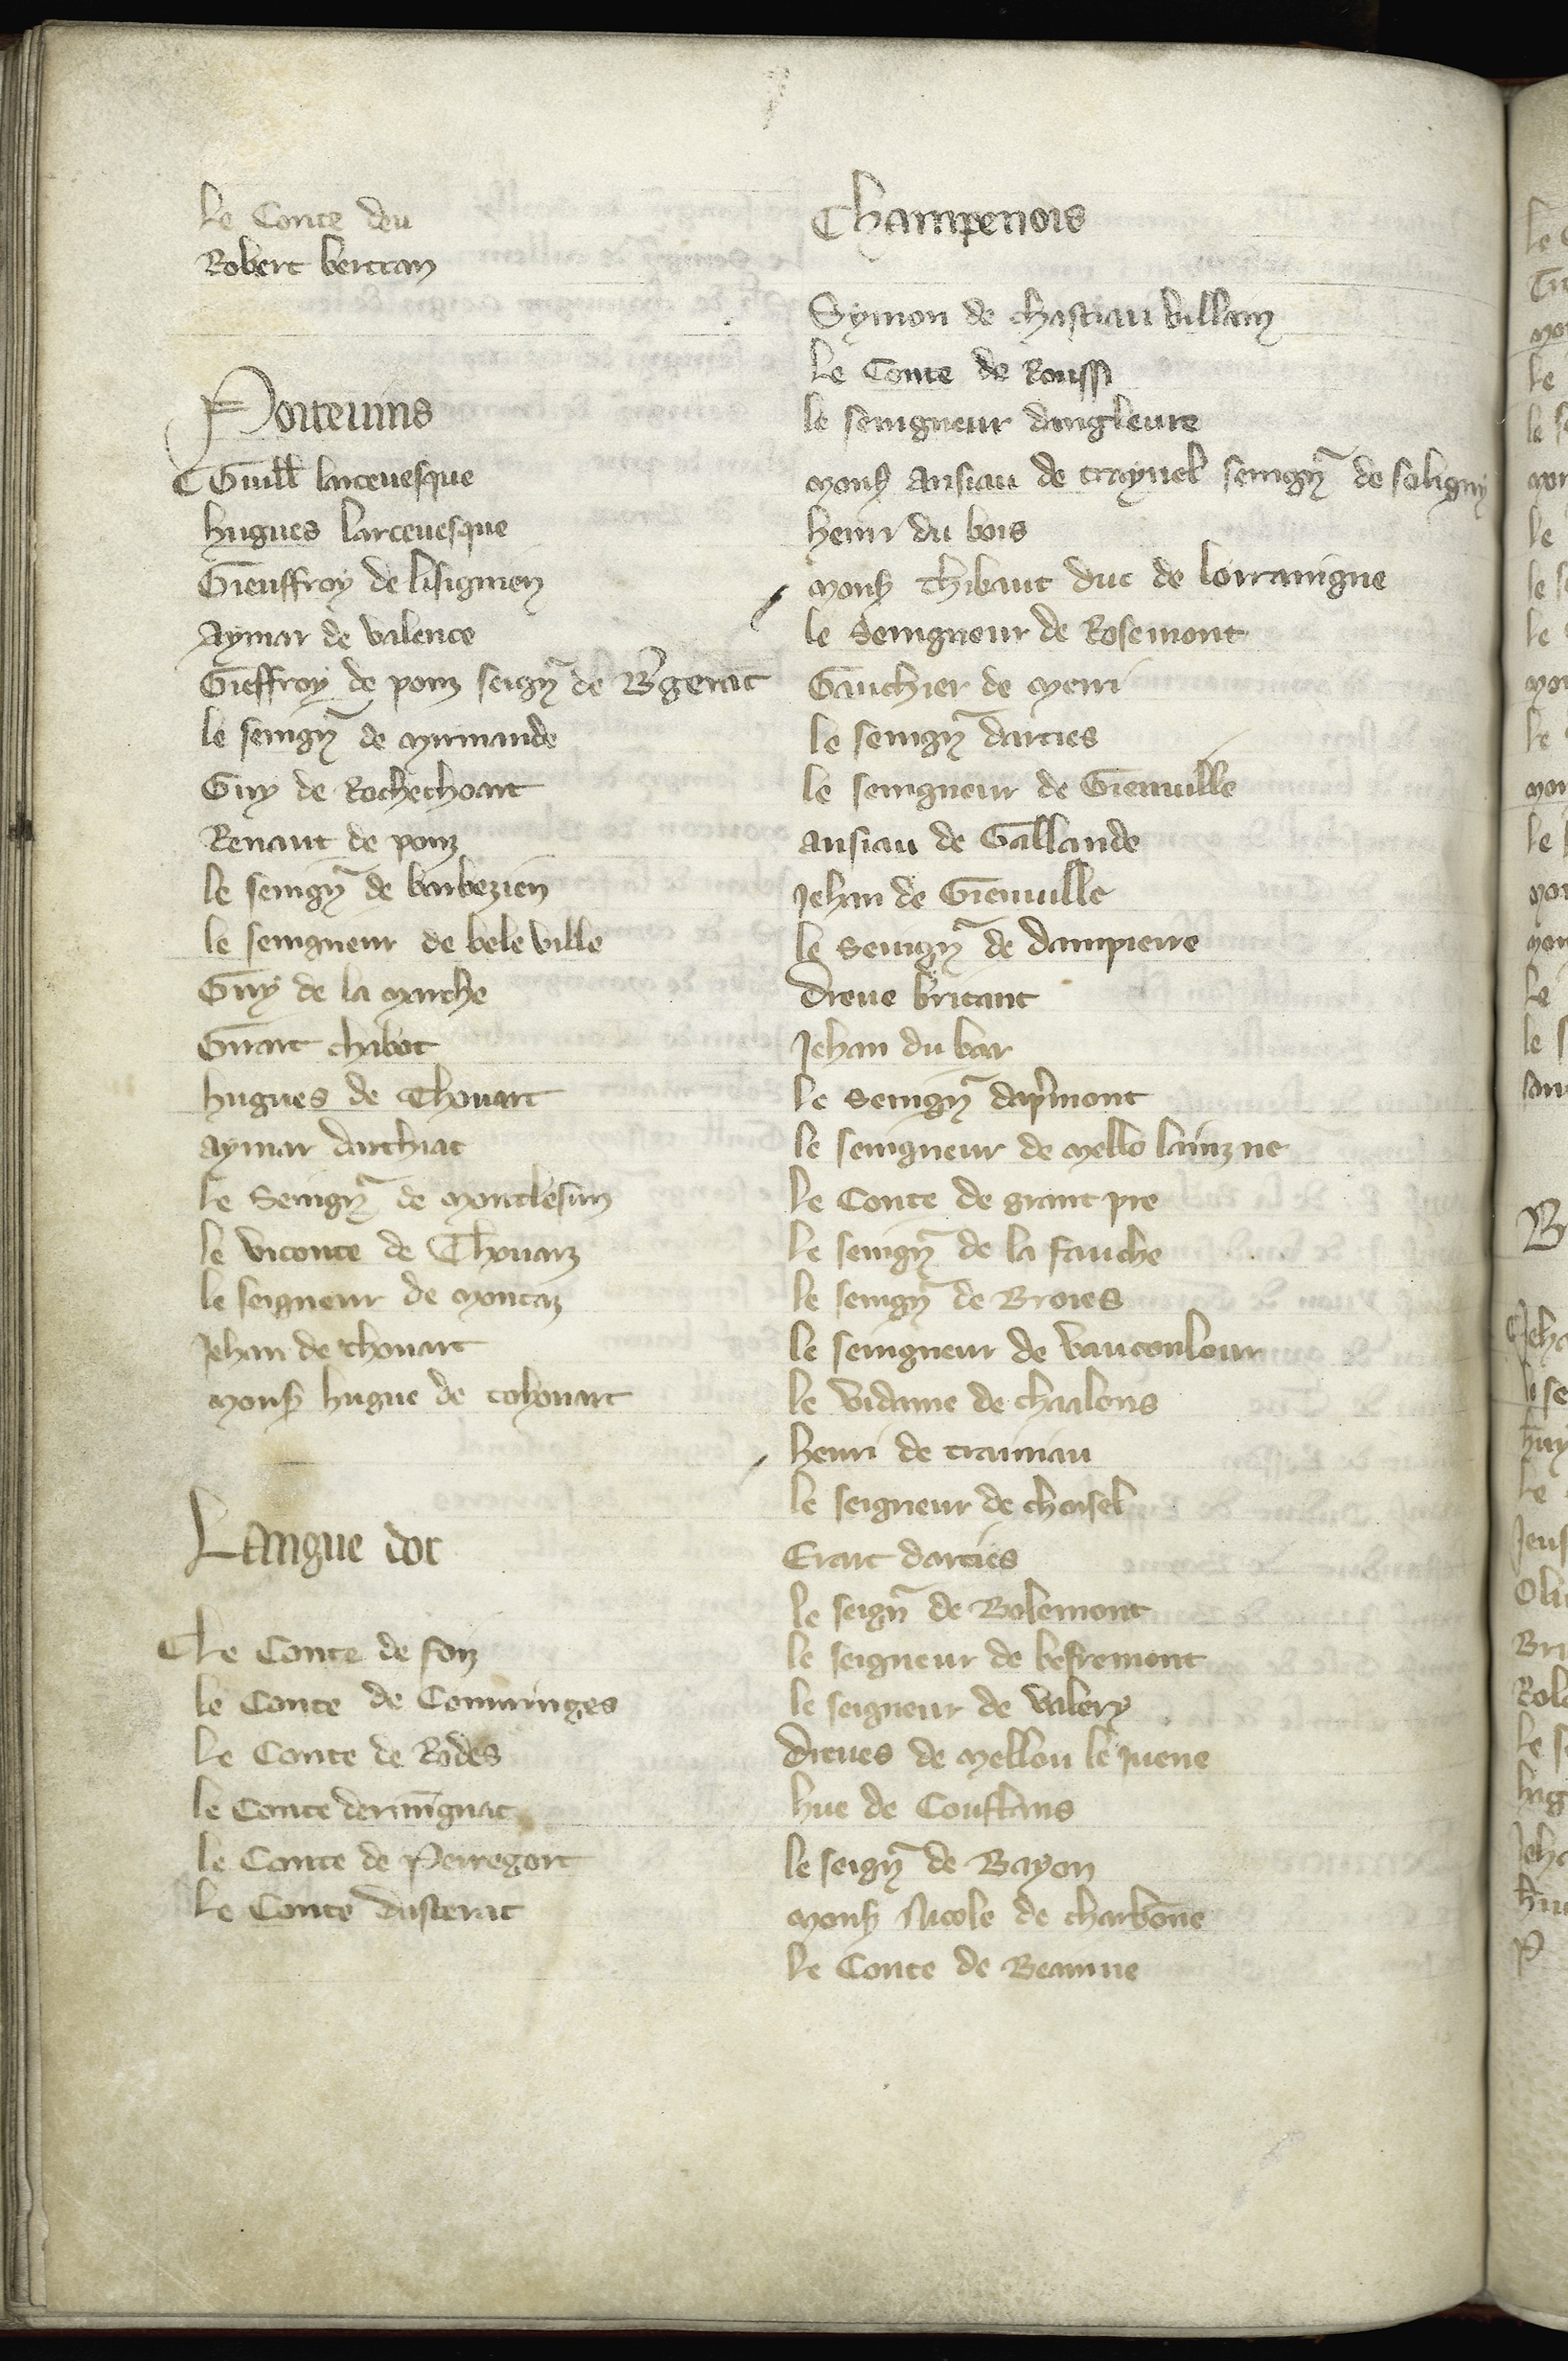 le Conte deu
Robert bertran
Poitevins
Guill larcevesque
hugues larcevesque
Gieuffroy de lisignien
Aymar de valence
Gieffroy de ponz seign de Bgerac
le seingn de mirmande
Guy de Rochechoart
Renaut de ponz
le seingn de barbezieu
le seingneur de bele ville
Guy de la marche
Girart chabot
hugues de Thouart
aymar darchiac
le Seingn de montlesun
le viconte de Thouarz
le seigneur de montaz
Jehan de thouart
mons hugue de tohouart
Langue doc
le Conte de foiz
le Conte de Comminges
le Conte de Rodes
le Conte dermignac
le Conte de Perregort
le Conte dasterac
Champenois
Symon de chastiau villain
le Conte de Roussi
le seingneur dangleure
mons ansiau de traynel seingn de soligny
henri du bois
mons thibaut duc de lorraingne
le Seingneur de Rosemont
Gauchier de merri
le seingn darcies
le seingneur de Gienville
ansiau de Gallande
Jehan de Gienville
le Seingn de dampierre
dreue britaut
Jehan du bar
le Seingn dapmont
le seingneur de mello lainzne
le Conte de grant pre
le seingn de la fauche
le seingn de Broies
le seingneur de vaucoulour
le vidame de chaalons
henri de trainiau
le seigneur de choisel
Erart darcies
le seign de Bolemont
le seigneur de befremont
le seigneur de valery
dreues de mellou le juene
hue de Conflans
le seign de Bayon
mons Nicole de charbone
le Conte de Beaune